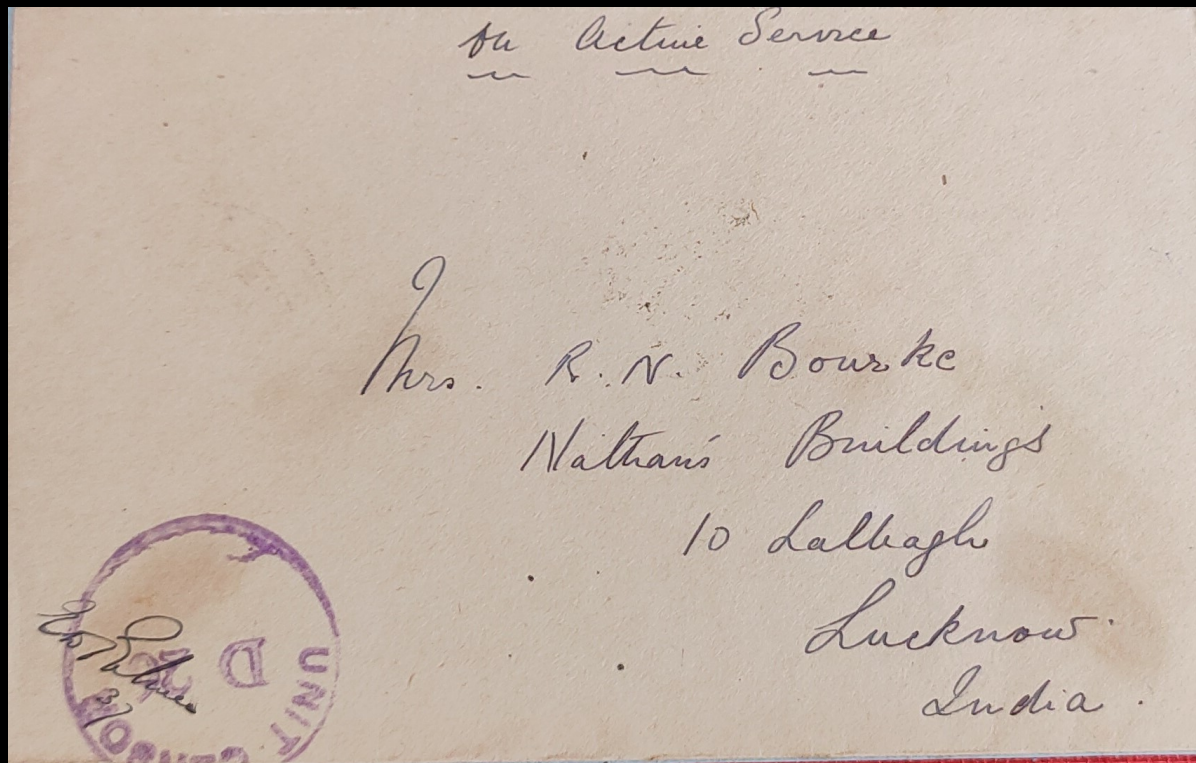 On Active Service
Mrs. R. N. Bourke
Nathan's Buildings
10 Lalbagh
Lucknow.
India.
UNIT CENSOR
D